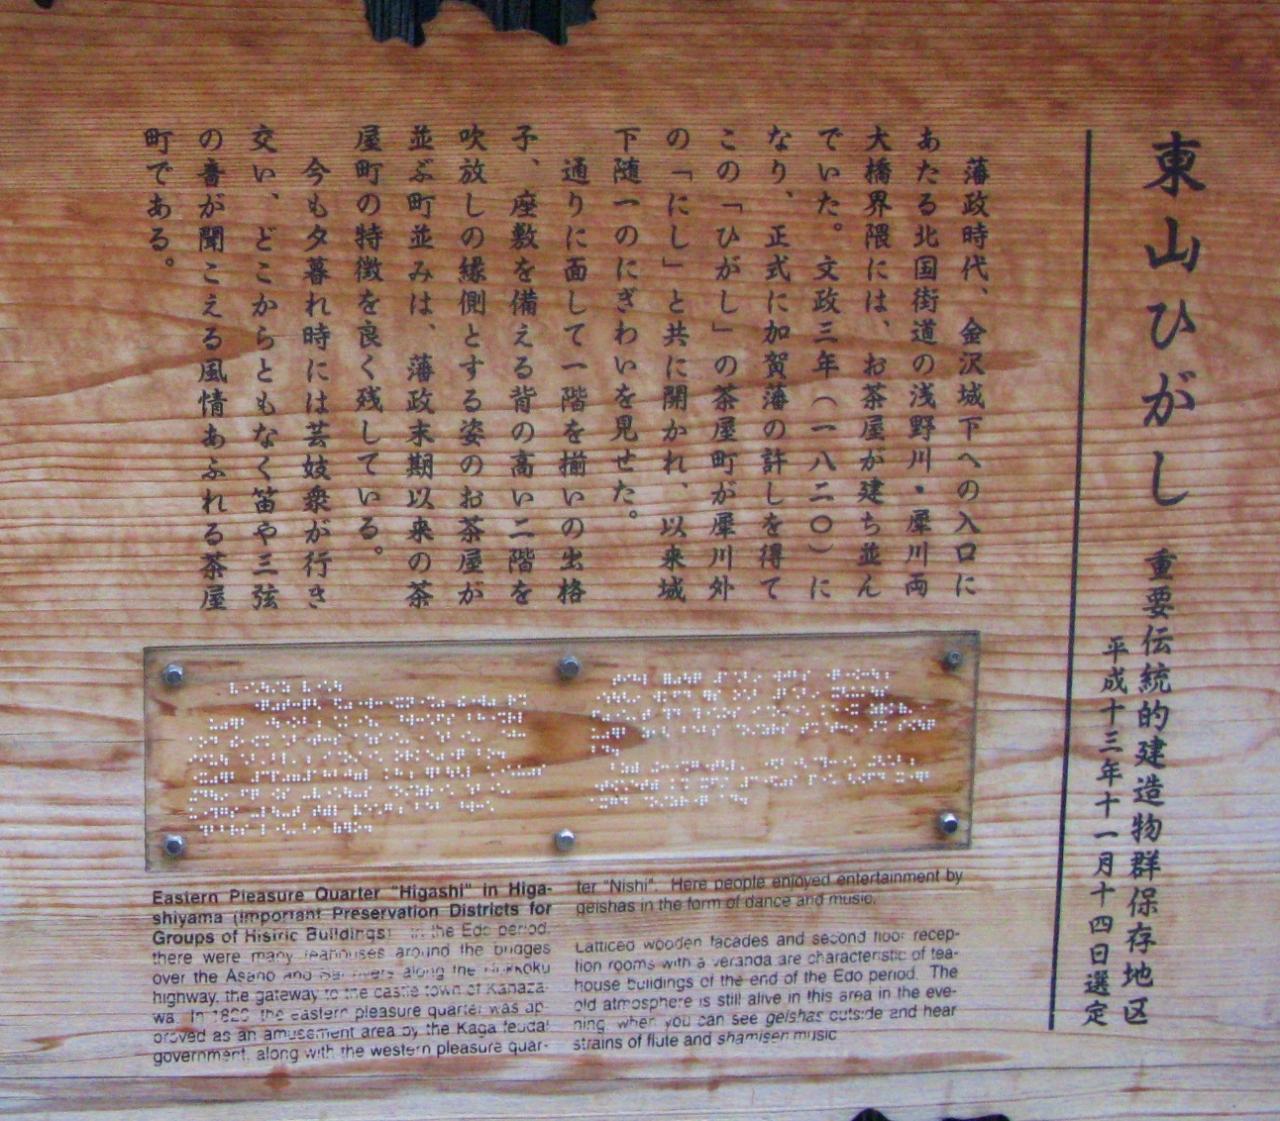 東山ひがし
重要伝統的建造物群保存地区
平成十三年十一月十四日選定
藩政時代、金沢城下への入口に
あたる北国街道の浅野川・犀川両
大橋界隈には、お茶屋が建ち並ん
でいた。文政三年（一八二〇）に
なり、正式に加賀藩の許しを得て
この「ひがし」の茶屋町が犀川外
の「にし」と共に開かれ、以来城
下随一のにぎわいを見せた。
通りに面して一階を揃いの出格
子、座敷を備える背の高い二階を
吹放しの縁側とする姿のお茶屋が
並ぶ町並みは、藩政末期以来の茶
屋町の特徴を良く残している。
今も夕暮れ時には芸妓衆が行き
交い、どこからともなく笛や三弦
の音が聞こえる風情あふれる茶屋
町である。
Eastern Pleasure Quarter "Higashi" in Higa-
shiyama (Important Preservation Districts for
Groups of Hisiric Buildings) In the Edo period,
there were many teahouses around the bridges
over the Asano and Sai rivers along the Hokkoku
highway, the gateway to the castle town of Kanaza-
wa. In 1820 the eastern pleasure quarter was ap-
proved as an amusement area by the Kaga feudal
government, along with the western pleasure quar-
ter "Nishi". Here people enjoyed entertainment by
geishas in the form of dance and music.
Latticed wooden facades and second floor recep-
tion rooms with a veranda are characteristic of tea-
house buildings of the end of the Edo period. The
old atmosphere is still alive in this area in the eve-
ning when you can see geishas outside and hear
strains of flute and shamisen music